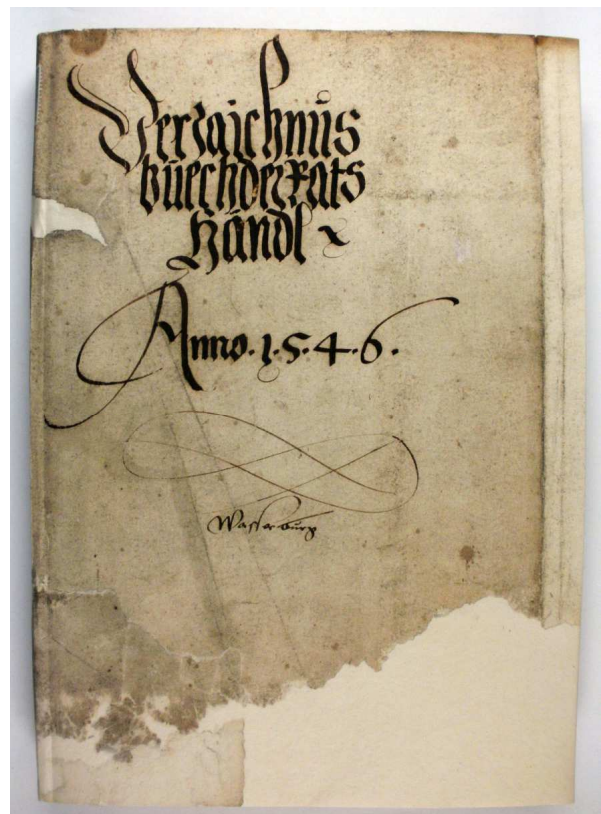 Verzaichnus
buech der Rats
händl
Anno. 1.5.4.6.
Wasserburg